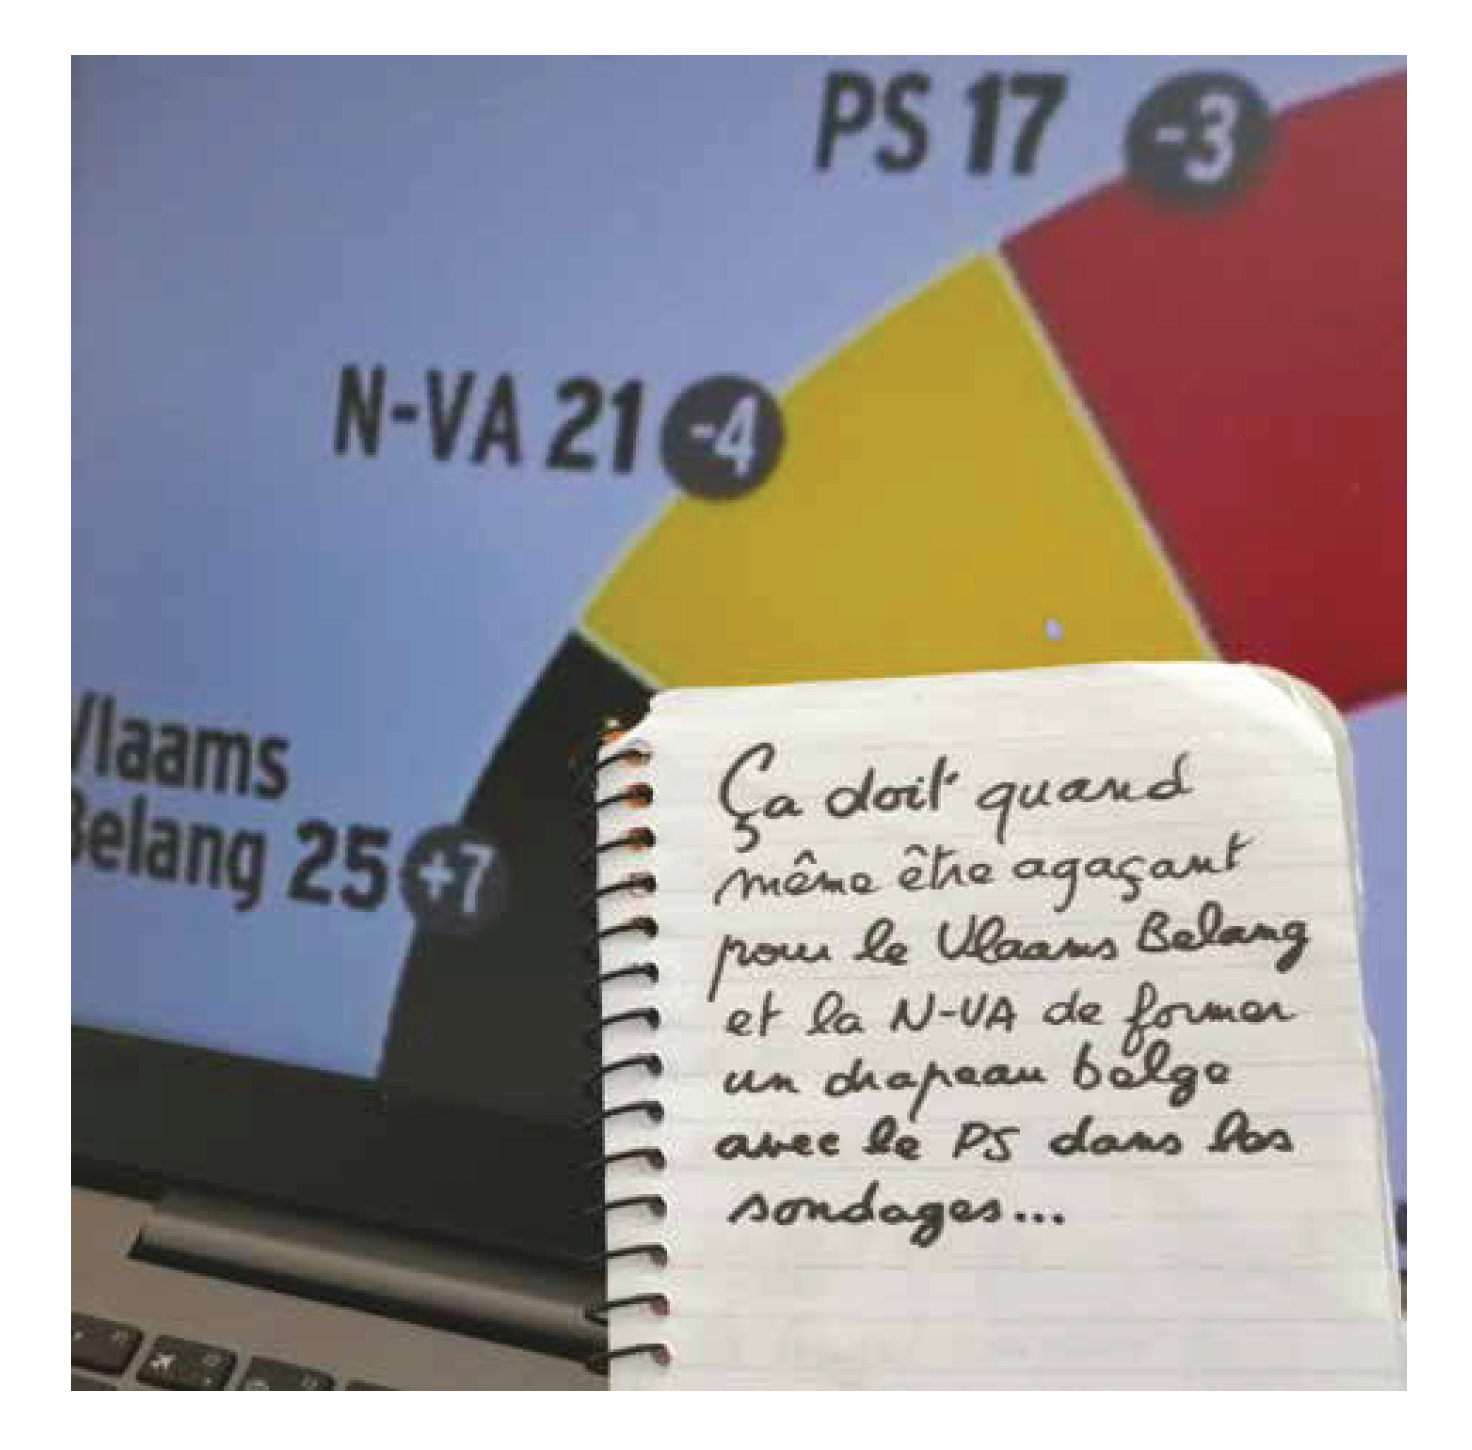 PS 17 -3
N-VA 21 -4
Vlaams
Belang 25 +7
Ça doit quand
même être agaçant
pour le Vlaams Belang
et la N-VA de former
un drapeau belge
avec le PS dans les
sondages...